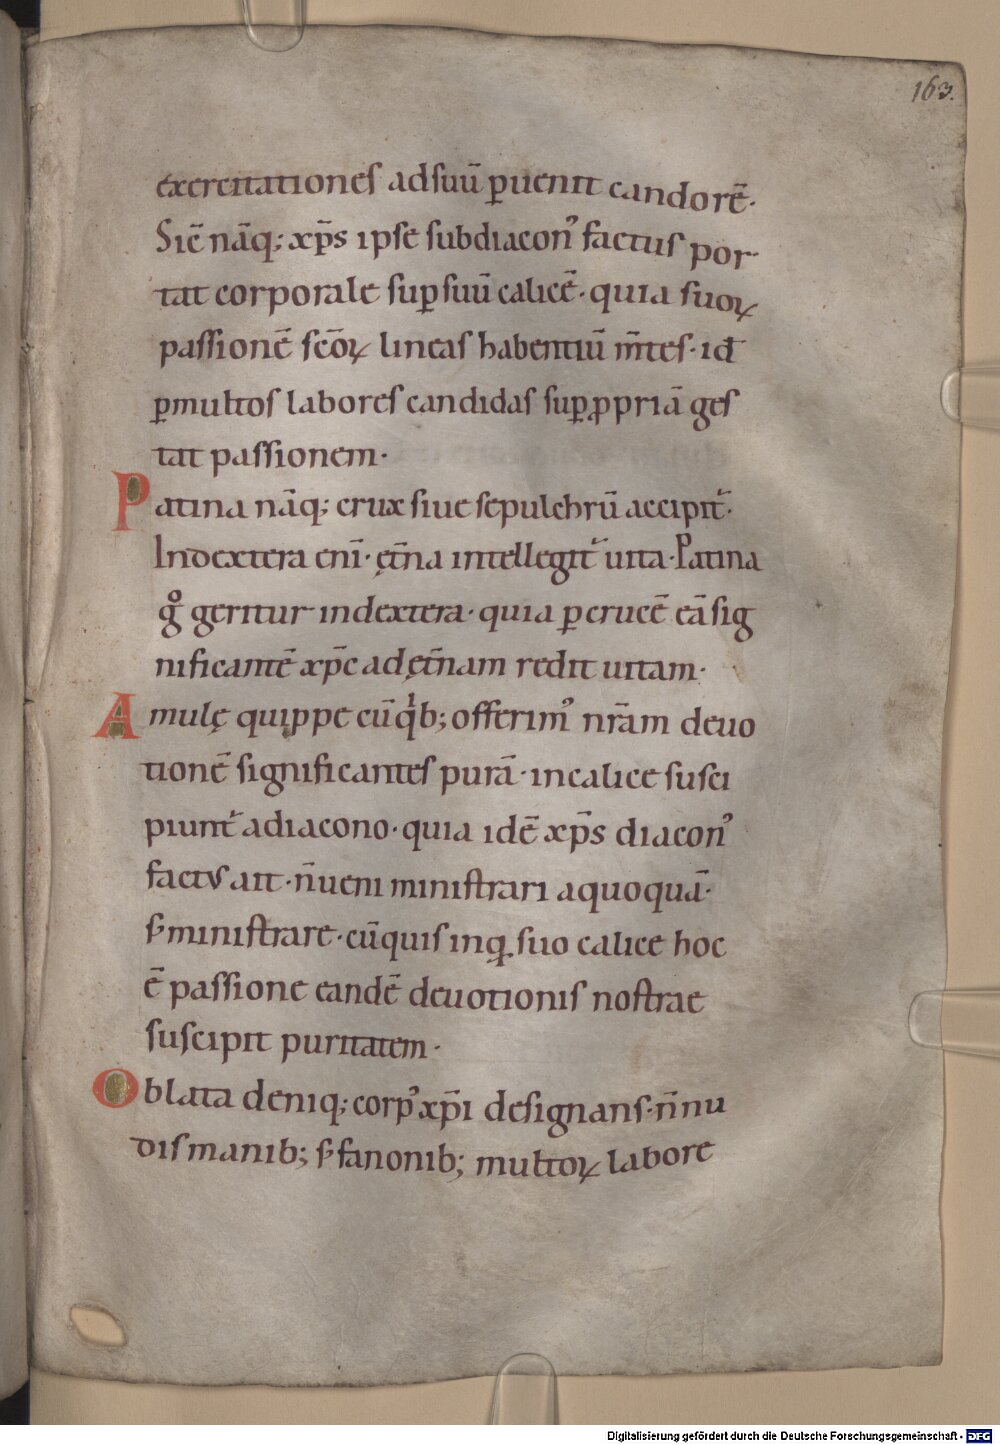 163.
exercitationes adsuū ꝑuenit candorē.
Sic̄ nāq; xp̄s ipse subdiacon᾿ factus por
tat corporale suꝑ suū calicē. quia suoꝝ
passionē sc̄oꝝ lineas habentiū m̄tes. id
ꝑmultos labores candidas suꝑ ꝓpriā ges
tat passionem.
Patina nāq; crux siue sepulchrū accipit᷑.
In dextera eni̅. ęt̄na intellegit᷑ uita. Patina
g̊ geritur indextera. quia ꝑ crucē eā sig
nificantē xp̄c ad ęt̄nam redit uitam.
Amulę quippe cū qͥb; offerim᾿ nr̄am deuo
tionē significantes purā. incalice susci
piunt᷑ adiacono. quia idē xp̄s diacon᾿
factus ait. n̄ ueni ministrari aquoquā.
s; ministrare. cū quis inqͣ suo calice hoc
ē passione eandē deuotionis nostrae
suscipit puritatem.
Oblata deniq; corp᾿ xp̄i designans. n̄ nu
dis manib; s; fanonib; multoꝝ labore
Digitalisierung gefördert durch die Deutsche Forschungsgemeinschaft - DFG